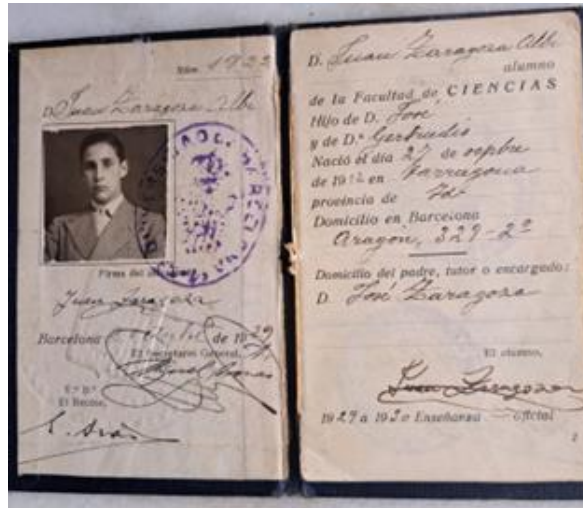 Núm. 1922
D. Juan Zaragoza Albi
Firma del
Juan Zaragoza
Barcelona de 1929
El Secretario General,
V.º B.º
El Rector,
D. Juan Zaragoza Albi
alumno
de la Facultad de CIENCIAS
Hijo de D. José
y de D.ª Gertrudis
Nació el día 27 de
de 1912 en Tarragona
provincia de Id
Domicilio en Barcelona
Aragón, 329-2º
Domicilio del padre, tutor o encargado:
D. José Zaragoza
El alumno,
Juan Zaragoza
1929 a 1930 Enseñanza oficial